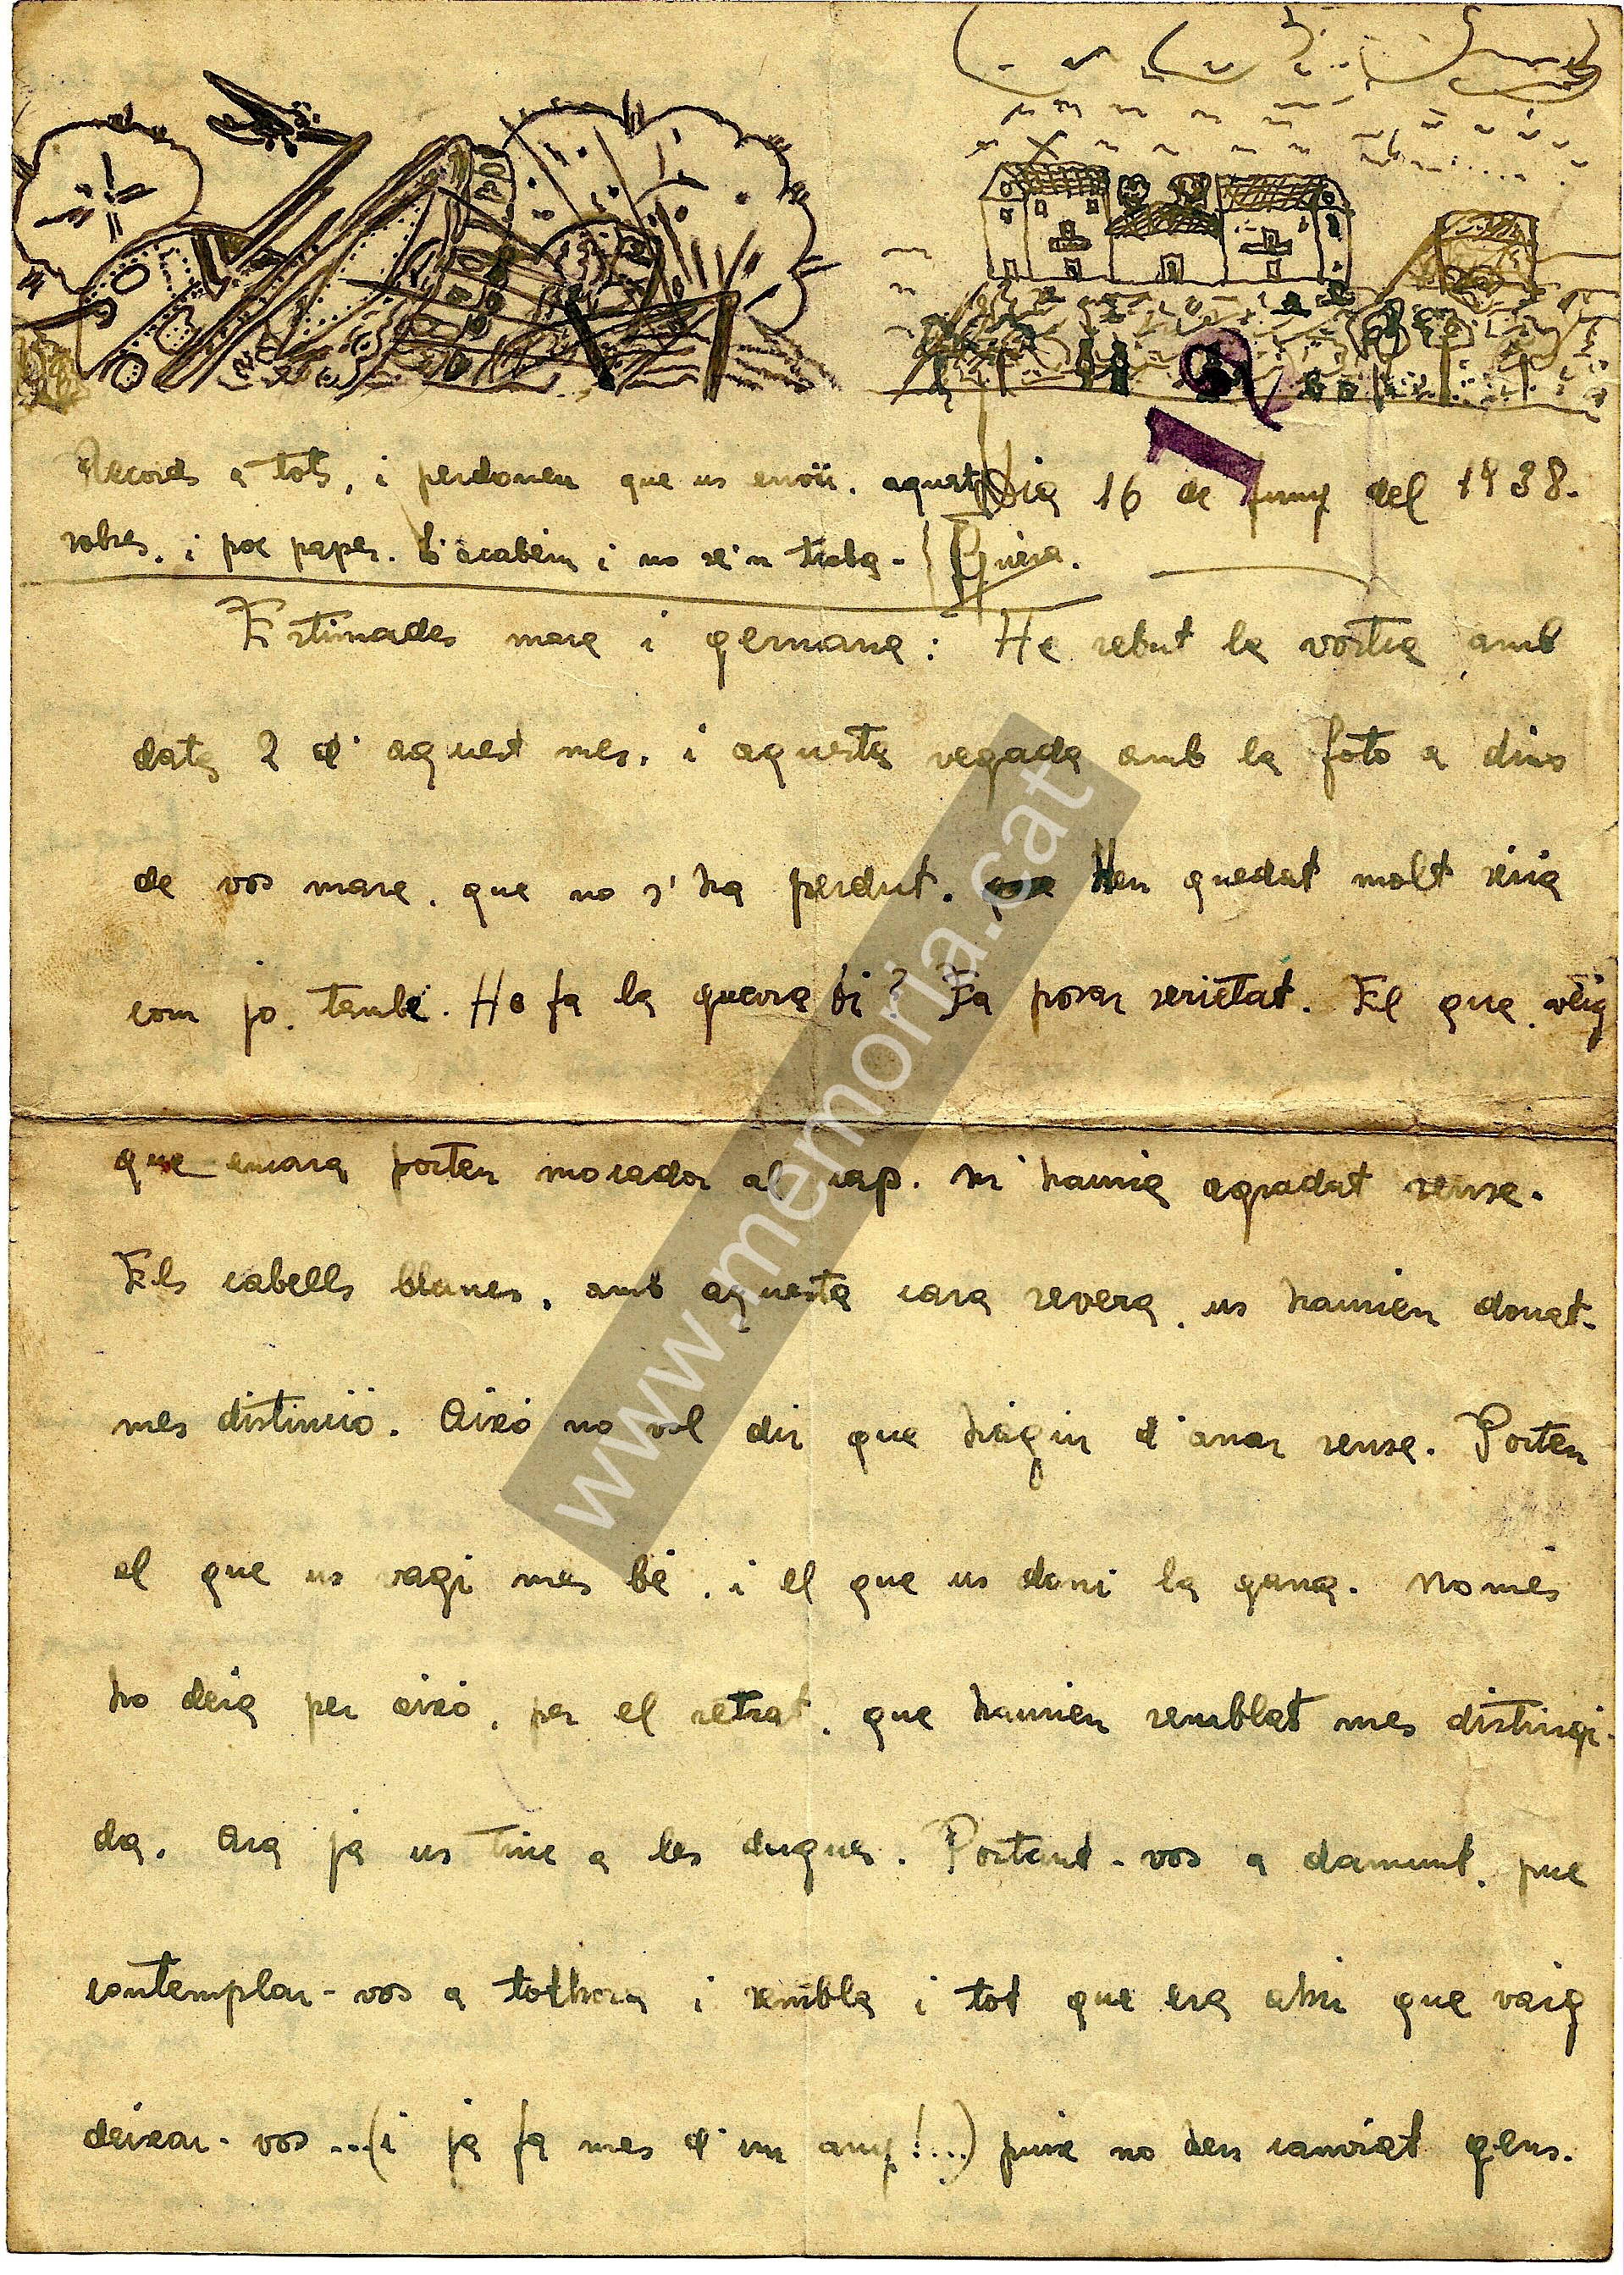 Dia 16 de Juny del 1938.
Records a tots, i perdoneu que us envïi, aquest
sobres, i poc paper. S'acabem i no se'n troba-
Estimades mare i germana: He rebut la vostra amb
data 2 d'aquest mes, i aquesta vegada amb la foto a dins
de vos mare, que no s'ha perdut. Heu quedat molt seria
com jo, també. Ho fa la guerra oi? Fa posar serietat. El que veig
que encara porteu mocador al cap. M'hauria agradat sense.
Els cabells blancs, amb aquesta cara severa, us haurien donat
mes distinció. Aixó no vol dir que hàgiu d'anar sense. Porteu
el que us vagi mes bé, i el que us doni la gana. Només
ho deia per aixó, per el retrat, que haurieu semblat mes distingi-
da. Ara ja us tinc a les dugues. Portant-vos a damunt, puc
contemplar-vos a tothora i sembla i tot que era ahir que vaig
deixar-vos...(i ja fa mes d'un any!...) puix no heu canviat gens.
www.memoria.cat